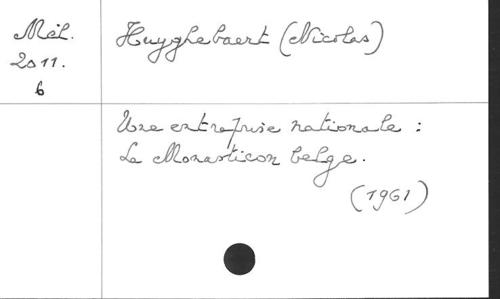 Mél.
2011.
6
Huyghebaert (Nicolas)
Une entreprise nationale :
Le Monasticon belge.
(1961)